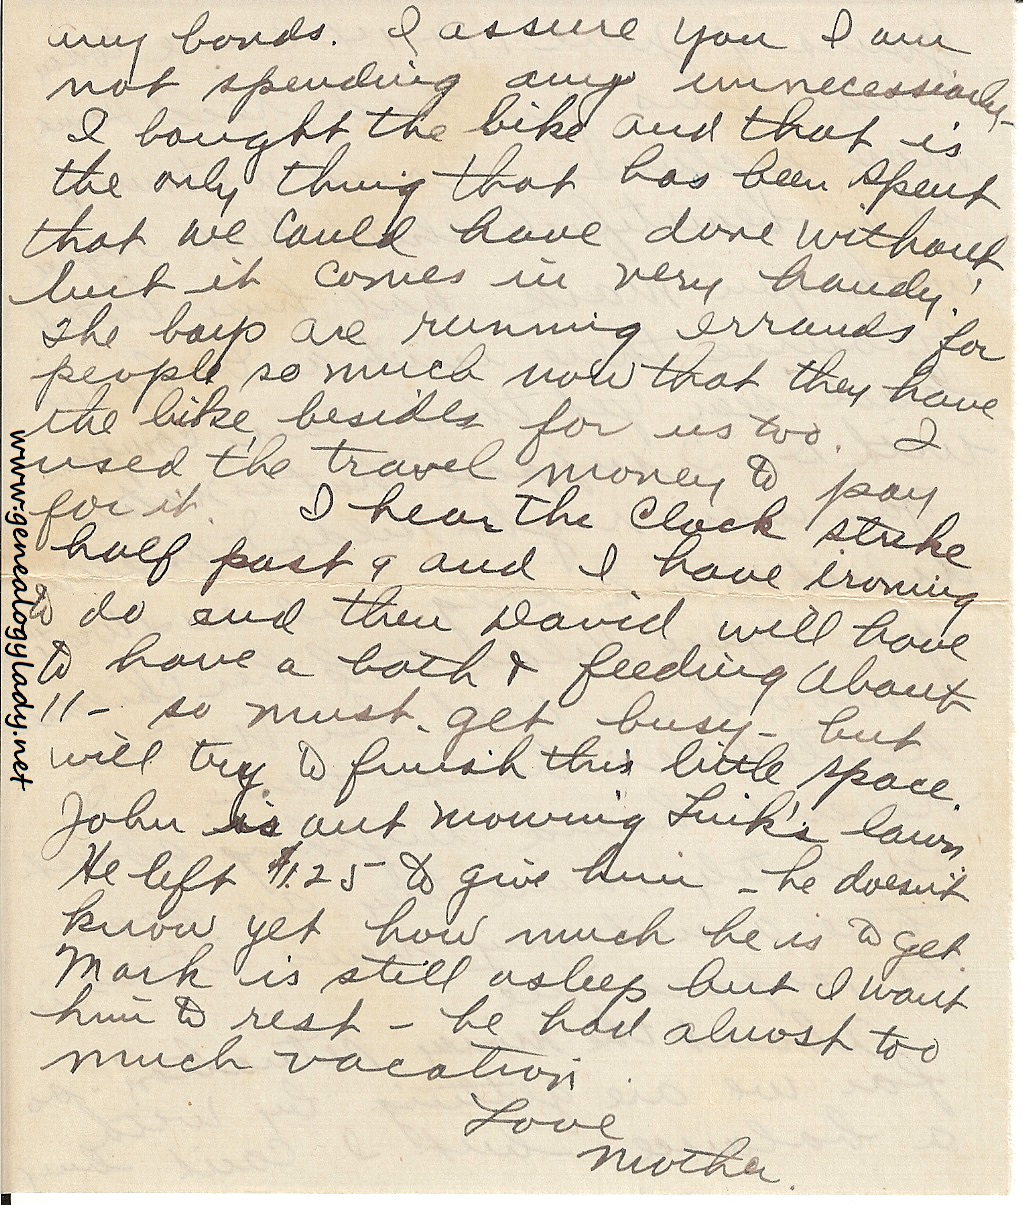 my bonds. I assure you I am
not spending any unnecessiarly-
I bought the bike and that is
the only thing that has been spent
that we could have done without
but it comes in very handy!
The boys are running errands for
people so much now that they have
the bike besides for us too. I
used the travel money to pay
for it. I hear the clock strike
half past 9 and I have ironing
to do and then David will have
to have a bath & feeding about
11- so must get busy- but
will try to finish this little space.
John is out mowing Link's lawn
He left $1.25 to give him - he doesn't
know yet how much he is to get.
Mark is still asleep but I want
him to rest - he had almost too
much vacation
Love
Mother.
www.genealogylady.net